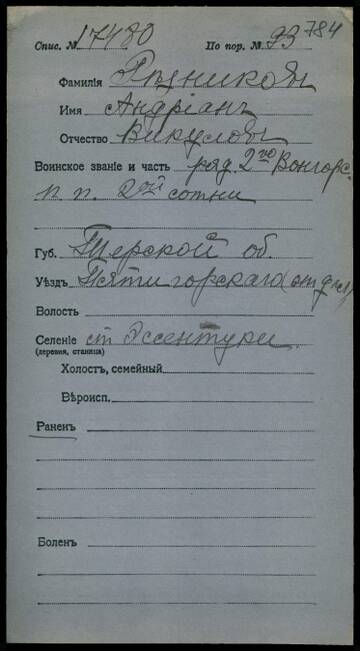 Спис. № 17480 По пор. № 93784
Фамилія Рѣзниковъ
Имя Андріанъ
Отчество Викуловъ
Воинское званіе и часть ряд. 2го Волгорс.
п. п. 2ой сотни
Губ. Терской об.
Уѣздъ Пятигорскаго (отдѣл)
Волость
Селеніе ст Эссентуки.
(деревня, станица)
Холостъ, семейный
Вѣроисп.
Раненъ
Боленъ